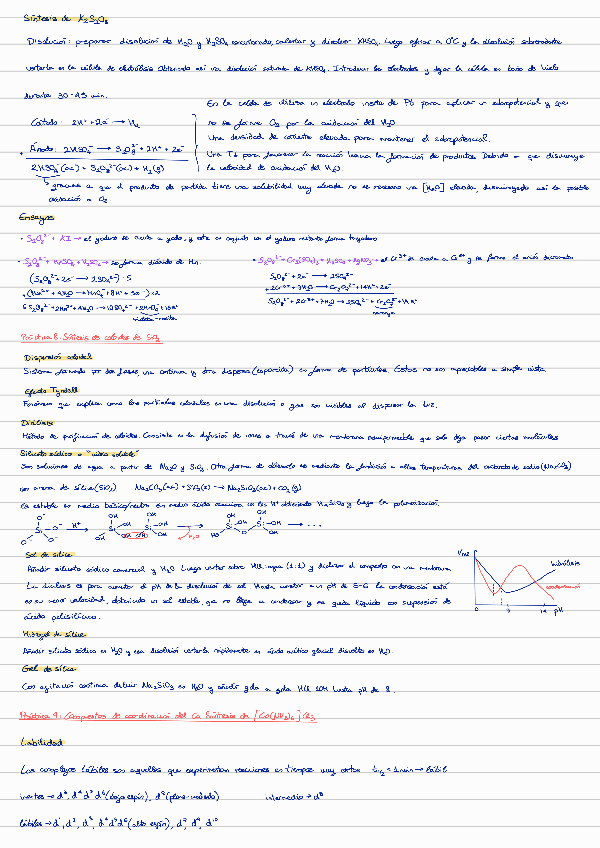 Síntesis de K₂S₂O₈
Disolución: preparar disolución de H₂O y H₂SO₄ concentrado, calentar y disolver KHSO₄. Luego enfriar a 0°C y la disolución sobrenadante
verterla en la célula de electrólisis obteniendo así una disolución saturada de KHSO₄. Introducir los electrodos y dejar la célula en baño de hielo
durante 30-45 min.
En la celda se utiliza un electrodo inerte de Pt para aplicar un sobrepotencial y que
Cátodo: 2H⁺ + 2e⁻ → H₂
no se forme O₂ por la oxidación del H₂O
Una densidad de corriente elevada para mantener el sobrepotencial.
Ánodo: 2HSO₄⁻ → S₂O₈²⁻ + 2H⁺ + 2e⁻
Una T↓ para favorecer la reacción hacia la formación de productos. Debido a que disminuye
2HSO₄⁻(ac) → S₂O₈²⁻(ac) + H₂(g)
la velocidad de oxidación del H₂O.
gracias a que el producto de partida tiene una solubilidad muy elevada no es necesario una [H₂O] elevada, disminuyendo así la posible
oxidación a O₂
Ensayos
· S₂O₈²⁻ + KI → el yoduro se oxida a yodo, y este en conjunto con el yoduro restante forma triyoduro
· S₂O₈²⁻ + MnSO₄ + H₂SO₄ → se forma dióxido de Mn.
· S₂O₈²⁻ + Cr₂(SO₄)₃ + H₂SO₄ + AgNO₃ → el Cr³⁺ se oxida a Cr⁶⁺ y se forma el anión dicromato
(S₂O₈²⁻ + 2e⁻ → 2SO₄²⁻) · 5
S₂O₈²⁻ + 2e⁻ → 2SO₄²⁻
+ (Mn²⁺ + 4H₂O → MnO₄⁻ + 8H⁺ + 5e⁻) × 2
+ 2Cr³⁺ + 7H₂O → Cr₂O₇²⁻ + 14H⁺ + 2e⁻
5S₂O₈²⁻ + 2Mn²⁺ + 8H₂O → 10SO₄²⁻ + 2MnO₄⁻ + 16H⁺
S₂O₈²⁻ + 2Cr³⁺ + 7H₂O → 2SO₄²⁻ + Cr₂O₇²⁻ + 14H⁺
violeta-rosita
naranja
Práctica 8: Síntesis de coloides de SiO₂
Dispersión coloidal
Sistema formado por dos fases, una continua y otra dispersa (esparcida) en forma de partículas. Estas no son apreciables a simple vista.
Efecto Tyndall
Fenómeno que explica como las partículas coloidales en una disolución o gas son visibles al dispersar la luz.
Diálisis
Método de purificación de coloides. Consiste en la difusión de iones a través de una membrana semipermeable que solo deja pasar ciertas moléculas
Silicato sódico o "vidrio soluble"
Son soluciones de agua a partir de Na₂O y SiO₂. Otra forma de obtenerlo es mediante la fundición a altas temperaturas del carbonato de sodio (Na₂CO₃)
con arena de sílice (SiO₂) Na₂CO₃(ac) + SiO₂(s) → Na₂SiO₃(ac) + CO₂(g)
Es estable en medio básico/neutro. En medio ácido reacciona con los H⁺ obteniendo H₂SiO₃ y luego la polimerización.
O⁻ O⁻ Si O⁻ O⁻ H⁺→ OH OH Si OH OH OH Si OH → H₂O OH OH HO-Si-O-Si-OH OH OH → ...
Sol de sílice
Añadir silicato sódico comercial y H₂O. Luego verter sobre HCl:agua (1:1) y dializar el compuesto con una membrana
La diálisis es para aumentar el pH de la disolución de sol. Hasta aumentar a un pH de 5-6 la condensación está
en su mayor velocidad, obteniendo un sol estable, que no llega a condensar y se queda líquido con suspensión de
ácido polisilícico.
Vrxn
hidrólisis
condensación
0 7 14 pH
Hidrogel de sílice
Añadir silicato sódico en H₂O y esa disolución verterla rápidamente en ácido acético glacial disuelto en H₂O.
Gel de sílice
Con agitación continua diluir Na₂SiO₃ en H₂O y añadir gota a gota HCl 10M hasta pH de 8.
Práctica 9: Compuestos de coordinación del Co. Síntesis de [Co(NH₃)₆]Cl₃
Labilidad
Los complejos lábiles son aquellos que experimentan reacciones en tiempos muy cortos t₁/₂ < 1 min → lábil
inertes → d³, d⁴ d⁵ d⁶ (bajo espín), d⁸ (plano-cuadrado) intermedio → d⁸
lábiles → d¹, d², d⁴ d⁵ d⁶ (alto espín), d⁷, d⁹, d¹⁰